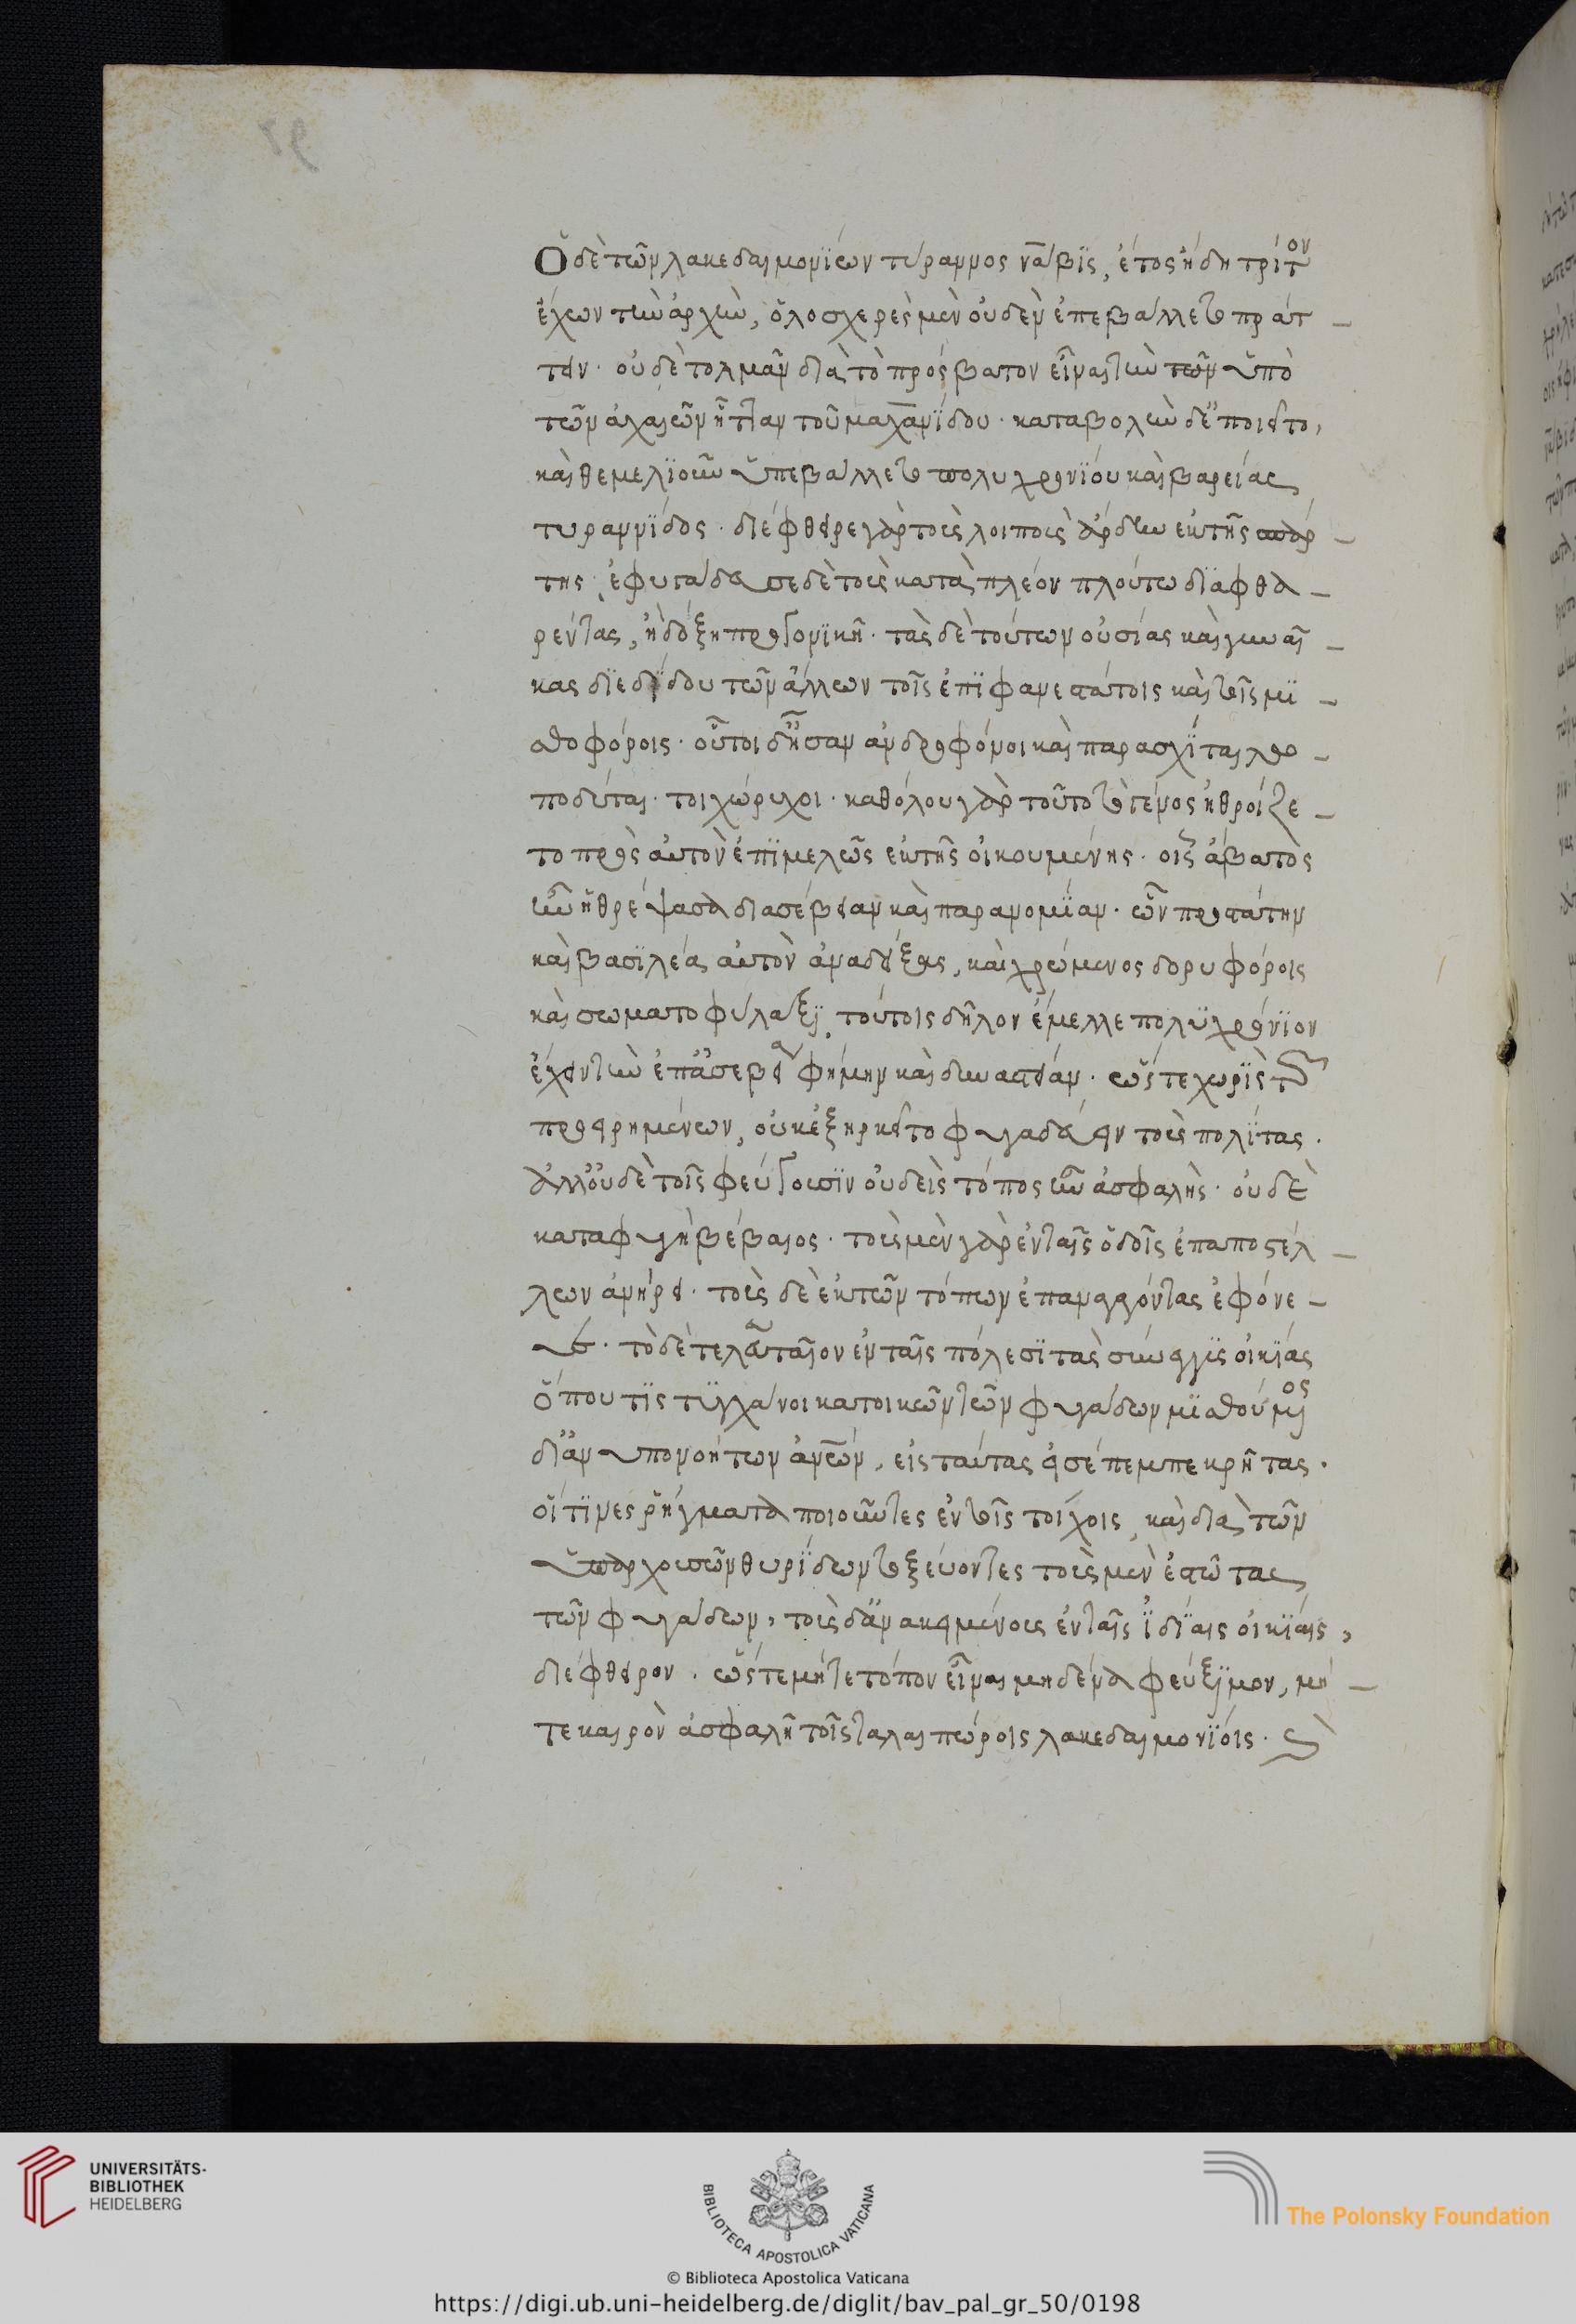 92
Ὁ δὲ τῶν λακεδαιμονΐων τύραννος νάβϊς, ἔτος ἤδη τρίτον
ἔχων τὴν ἀρχὴν, ὁλοσχερὲς μὲν οὐδὲν ἐπεβάλλετο πράτ-
τειν. οὐδὲ τολμᾶν διὰ τὸ πρόσβατον εἶναι τὴν τῶν ὑπὸ
τῶν ἀχαιῶν ἧτταν τοῦ μαχανΐδου. καταβολὴν δ' ἐποιεῖτο,
καὶ θεμέλϊον ὑπεβάλλετο πολυχρονΐου καὶ βαρείας
τυραννΐδος. διέφθειρε γὰρ τοὺς λοιποὺς ἄρδην ἐκ τῆς σπάρ-
της, ἐφυγάδευσε δὲ τοὺς κατὰ πλέον πλούτω δϊαφθα-
ρέντας, ἢ δόξη προγονϊκῆ. τὰς δὲ τούτων οὐσίας καὶ γυναῖ-
κας δϊεδΐδου τῶν ἄλλων τοῖς ἐπϊφανεστάτοις καὶ τοῖς μϊ-
σθοφόροις. οὗτοι δ' ἦσαν ἀνδροφόνοι καὶ παρασχΐται λωο-
ποδύται. τοιχώρυχοι. καθόλου γὰρ τοῦτο τὸ γένος ἠθροίζε-
το πρὸς αὐτὸν ἐπϊμελῶς ἐκ τῆς οἰκουμένης. οἷς ἄβατος
ἦν ἡ θρέψασα δι' ἀσέβειαν καὶ παρανομΐαν. ὧν προστάτην
καὶ βασϊλέα αὐτὸν ἀναδείξας, καὶ χρώμενος δορυφόροις
καὶ σωματοφύλαξϊ, τούτοις δῆλον ἔμελλε πολϋχρόνϊον
ἔχειν τὴν ἐπ' ἀσεβεία φήμην καὶ δυναστείαν. ὥστε χωρὶς τῶν
προειρημένων, οὐκ ἐξηρκεῖτο φυγαδεύειν τοὺς πολΐτας.
ἀλλ' οὐδὲ τοῖς φεύγουσϊν οὐδεὶς τόπος ἦν ἀσφαλὴς. οὐδὲ
καταφυγὴ βέβαιος. τοὺς μὲν γὰρ ἐν ταῖς ὁδοῖς ἐπαποστέλ-
λων ἀνήρει. τοὺς δὲ ἐκ τῶν τόπων ἐπαναγόντας ἐφόνευ-
ε. τὸ δὲ τελευταῖον ἐν ταῖς πόλεσϊ τὰς σύνεγγυς οἰκΐας
ὅπου τὶς τϋγχάνοι κατοικῶν τῶν φυγάδων μϊσθούμενος
δι' ἀνυπονοήτων ἀνθρώπων, εἰς ταύτας εἰσέπεμπε κρῆτας.
οἵτϊνες ῥήγματα ποιοῦντες ἐν τοῖς τοίχοις, καὶ διὰ τῶν
ὑπαρχουσῶν θυρΐδων τοξεύοντες τοὺς μὲν ἑστῶτας
τῶν φυγάδων, τοὺς δ' ἀνακειμένους ἐν ταῖς ἰδΐαις οἰκΐαις,
διέφθειρον. ὥστε μήτε τόπον εἶναι μηδένα φεύξϊμον, μή-
τε καιρὸν ἀσφαλῆ τοῖς ταλαιπώροις λακεδαιμονΐοις.
UNIVERSITÄTS-
BIBLIOTHEK
HEIDELBERG
BIBLIOTECA APOSTOLICA VATICANA
The Polonsky Foundation
© Biblioteca Apostolica Vaticana
https://digi.ub.uni-heidelberg.de/diglit/bav_pal_gr_50/0198